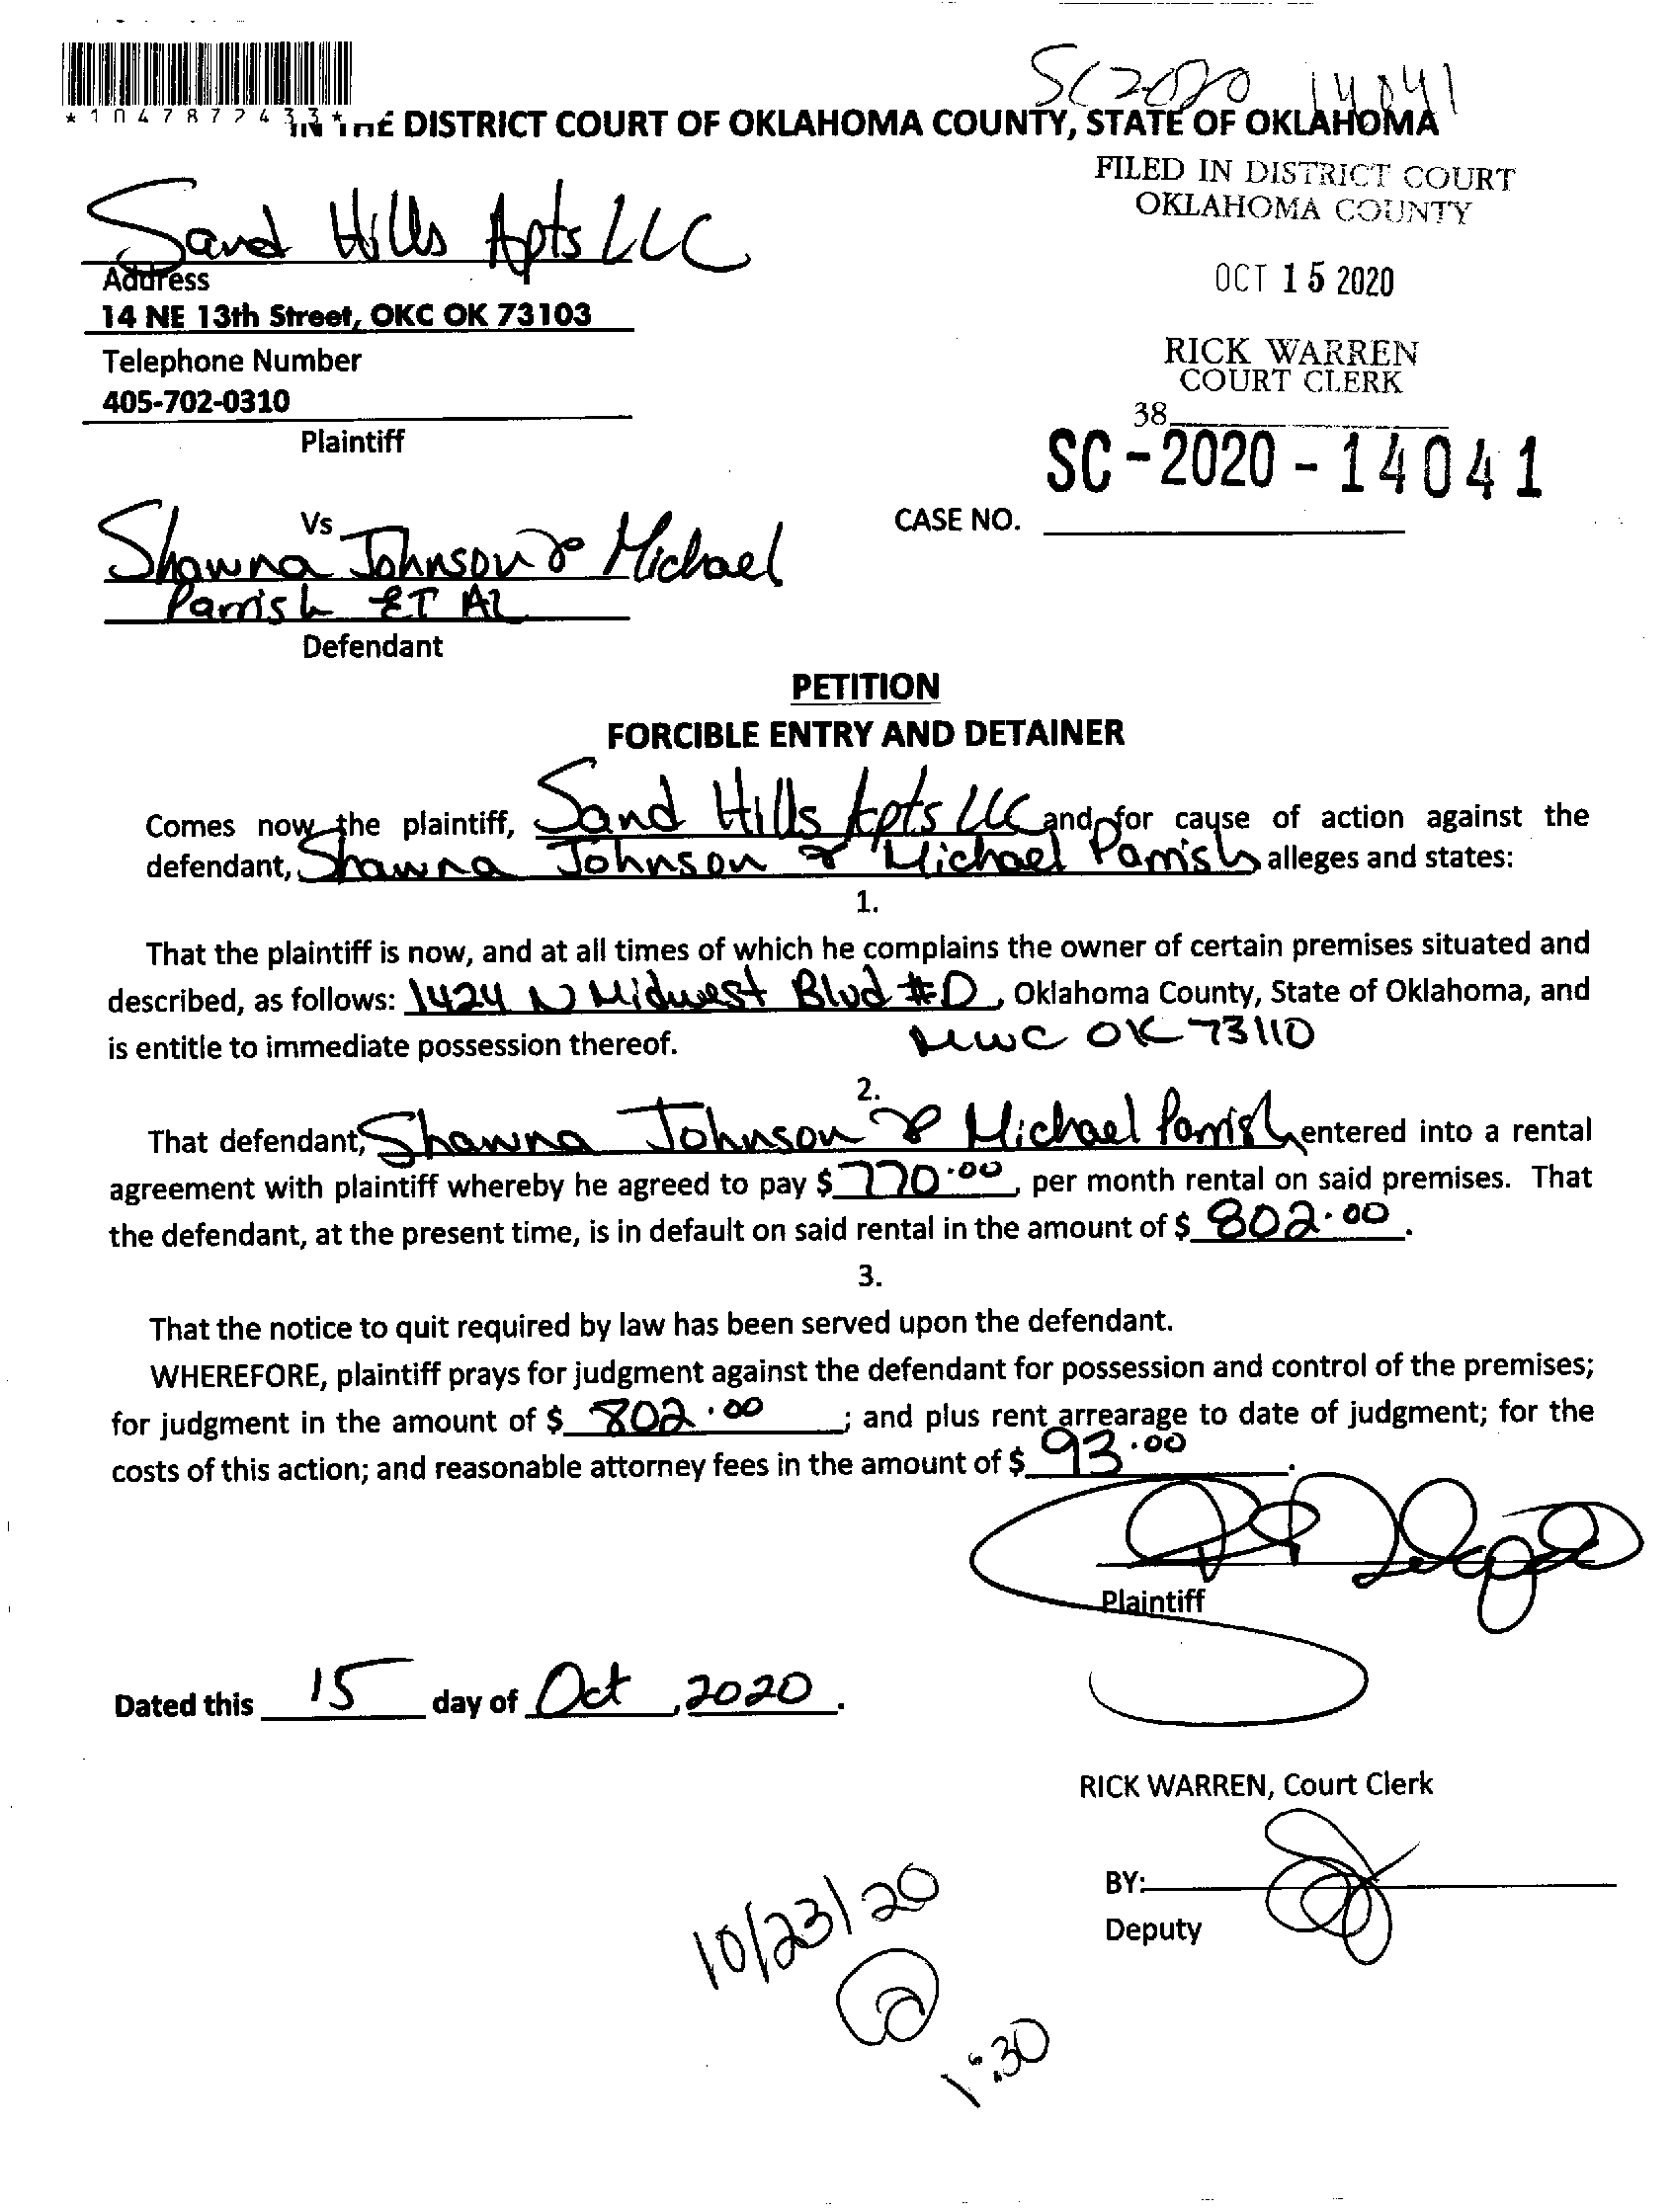 SC2020 14041
*1047872433*
IN THE DISTRICT COURT OF OKLAHOMA COUNTY, STATE OF OKLAHOMA
FILED IN DISTRICT COURT
OKLAHOMA COUNTY
Sand Hills Apts LLC
Address
OCT 15 2020
14 NE 13th Street, OKC OK 73103
Telephone Number
RICK WARREN
COURT CLERK
405-702-0310
38
Plaintiff
SC-2020-14041
Vs
CASE NO.
Shawna Johnson & Michael
Parrish ET AL
Defendant
PETITION
FORCIBLE ENTRY AND DETAINER
Comes now the plaintiff, Sand Hills Apts LLC and for cause of action against the
defendant, Shawna Johnson & Michael Parrish alleges and states:
1.
That the plaintiff is now, and at all times of which he complains the owner of certain premises situated and
described, as follows: 1424 N Midwest Blvd #D, Oklahoma County, State of Oklahoma, and
is entitle to immediate possession thereof. MWC OK 73110
2.
That defendant, Shawna Johnson & Michael Parrish entered into a rental
agreement with plaintiff whereby he agreed to pay $ 770.00, per month rental on said premises. That
the defendant, at the present time, is in default on said rental in the amount of $ 802.00.
3.
That the notice to quit required by law has been served upon the defendant.
WHEREFORE, plaintiff prays for judgment against the defendant for possession and control of the premises;
for judgment in the amount of $ 802.00; and plus rent arrearage to date of judgment; for the
costs of this action; and reasonable attorney fees in the amount of $ 93.00.
Plaintiff
Dated this 15 day of Oct, 2020.
RICK WARREN, Court Clerk
BY:
Deputy
10/23/20
@
1:30